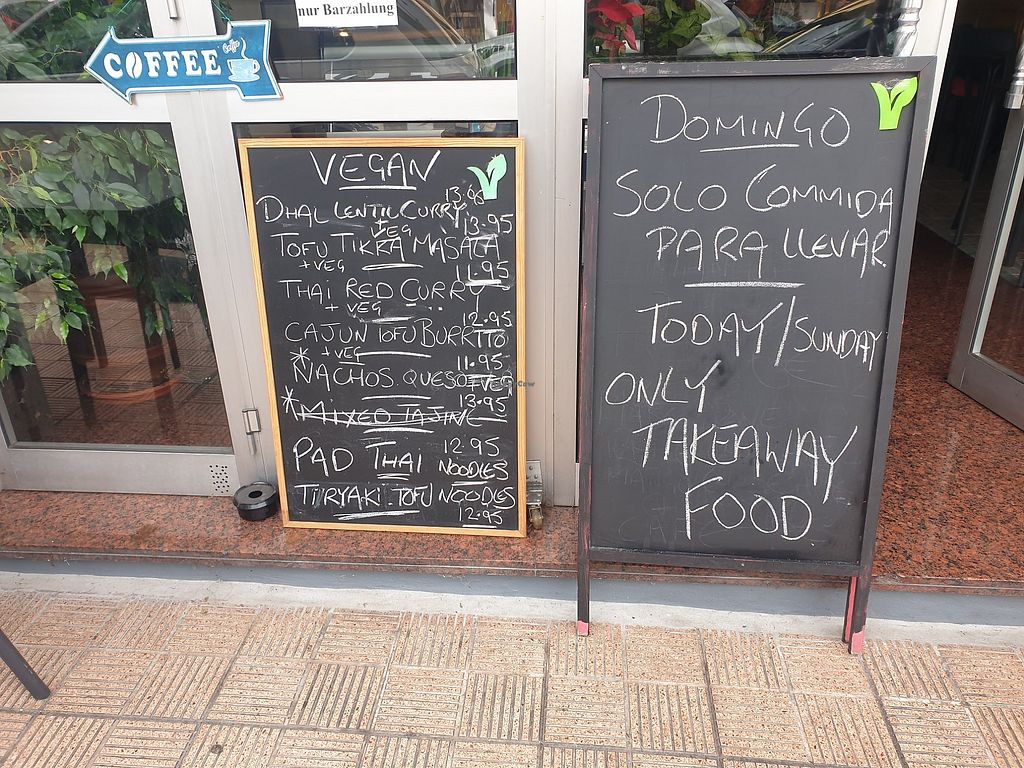 nur Barzahlung
COFFEE
Coffee
VEGAN
13.95
DHAL LENTIL CURRY
+ VEG
13.95
TOFU TIKKA MASALA
+ VEG
11.95
THAI RED CURRY
+ VEG
12.95
CAJUN TOFU BURRITO
+ VEG
11.95
*NACHOS QUESO
13.95
*MIXED TAJINE
PAD THAI NOODLES
12.95
TIRYAKI TOFU NOODLES
12.95
DOMINGO
SOLO COMMIDA
PARA LLEVAR
TODAY/SUNDAY
ONLY
TAKEAWAY
FOOD